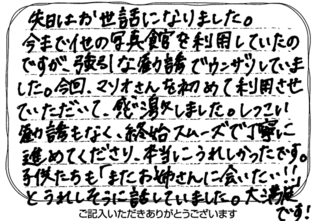 先日はお世話になりました。
今まで他の写真館を利用していたの
ですが、強引な勧誘でウンザリしていま
した。今回、マリオさんを初めて利用させ
ていただいて、感激しました。しつこい
勧誘もなく、終始スムーズで丁寧に
進めてくださり、本当にうれしかったです。
子供たちも「またお姉さんに会いたい!!」
とうれしそうに話していました。大満足
です!
ご記入いただきありがとうございます